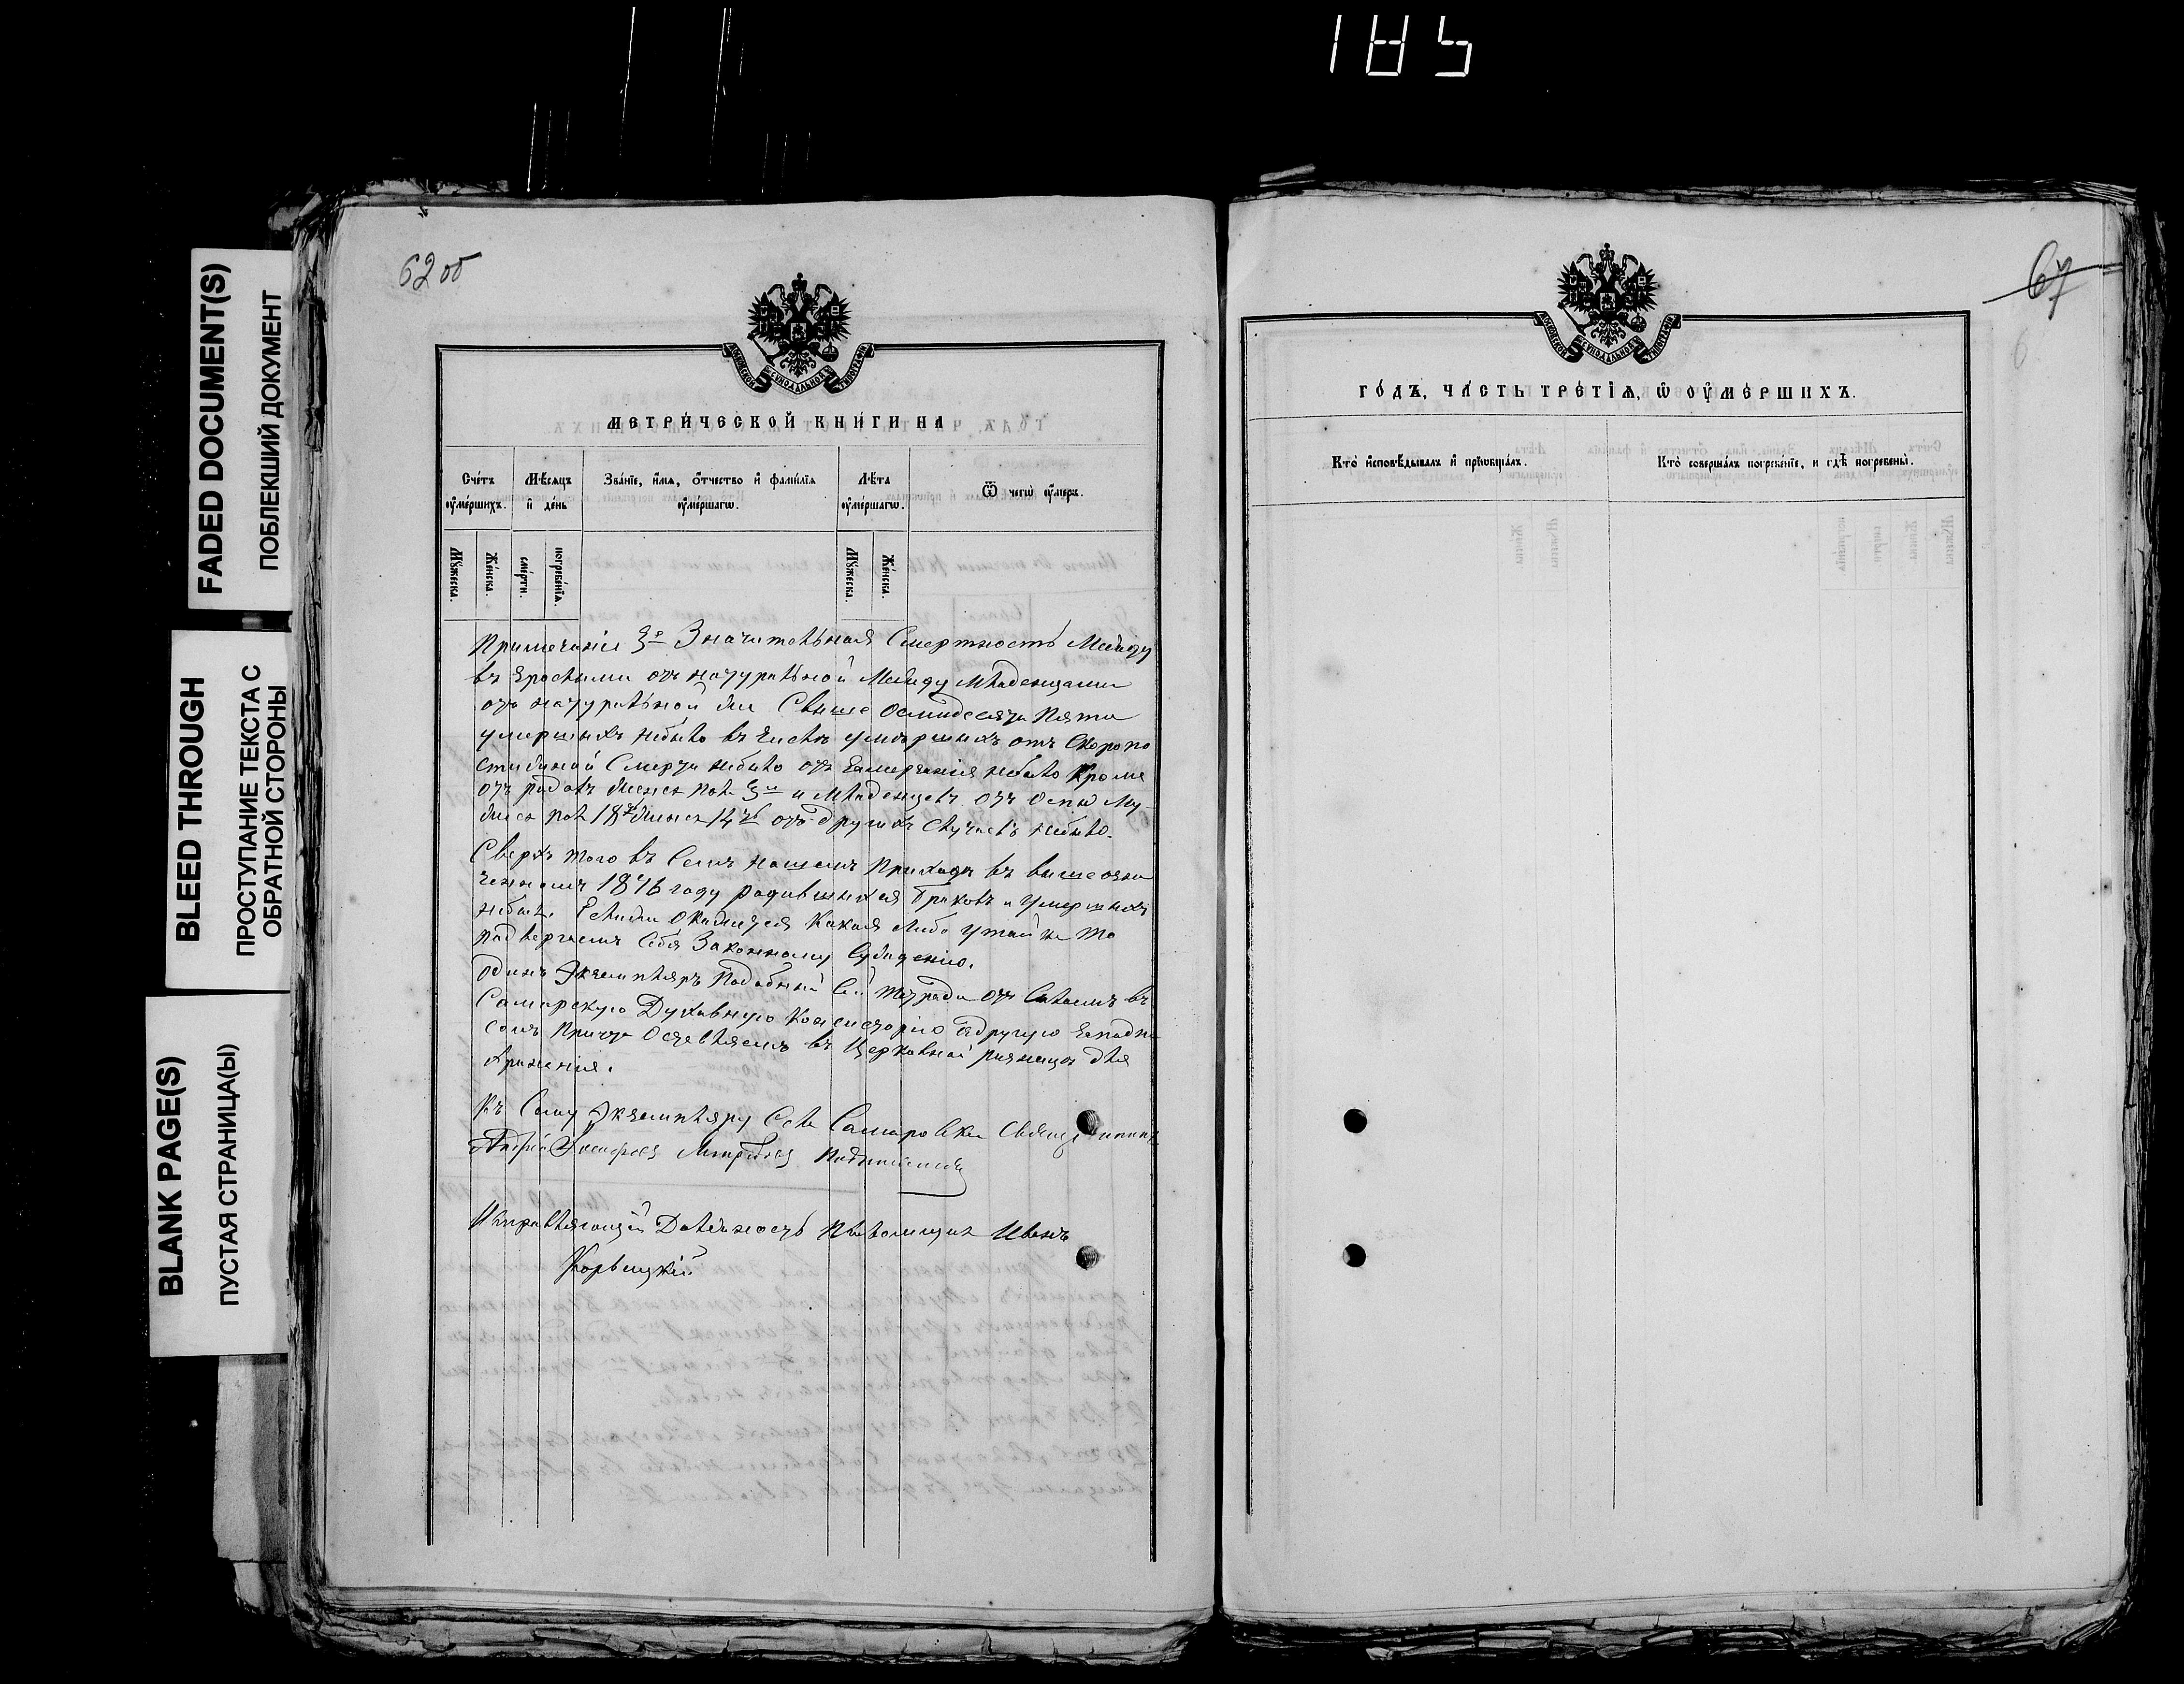 185
FADED DOCUMENT(S)
ПОБЛЕКШИЙ ДОКУМЕНТ
BLEED THROUGH
ПРОСТУПАНИЕ ТЕКСТА С
ОБРАТНОЙ СТОРОНЫ
BLANK PAGE(S)
ПУСТАЯ СТРАНИЦА(Ы)
62 об
МОСКОВСКОЙ СѴНОДАЛЬНОЙ ТИПОГРАФІИ
МЕТРИ́ЧЕСКОЙ КНИ́ГИ НА
Сче́тъ ᲂу҆ме́ршихъ.
Мѣ́сяцъ и҆ де́нь
Зва́нїе, и҆́мѧ, ѻ҆́тчество и҆ фами́лїѧ ᲂу҆ме́ршагѡ.
Лѣ́та ᲂу҆ме́ршагѡ.
Ѿ чегѡ̀ ᲂу҆́меръ.
Мꙋ́жеска.
Же́нска.
сме́рти.
погребе́нїѧ.
Мꙋ́жеска.
Же́нска.
Примечание 3е Значительная Смертность Между
взрослыми отъ натуральной Между Младенцами
отъ натуральной Свыше осмидесяти Пяти
умершихъ небыло въ числе умершихъ отъ Скоропо
стижной Смерти небыло отъ замерзания небыло Кроме
отъ родовъ женск пола 3и и Младенцевъ отъ оспы Му-
жеск пол 18 женск 14 отъ других случаевъ небыло.
Сверхъ того въ Семъ нашемъ Приходе въ вышеозна
ченномъ 1876 году родившихся Браковъ и умершихъ
небыло. Естьли окажется Какая либо утайка то
подвергаемъ Себя Законному Суждению.
Одинъ Экземпляръ Подобный Сей тетради отъ Сылаемъ въ
Самарскую Духовную Консисторию а другую за подпи
сомъ Причта Оставляемъ въ Церковной ризнице для
хранения.
Къ Сему Экземпляру Села Самаровки Священникъ
Подписался
Исправляющий Должность Псаломщика Иванъ
67
МОСКОВСКОЙ СѴНОДАЛЬНОЙ ТИПОГРАФІИ
ГО́ДЪ, ЧА́СТЬ ТРЕ́ТЇѦ, Ѡ҆ ОУ҆МЕ́РШИХЪ.
Кто̀ и҆сповѣ́дывалъ и҆ прїѡбща́лъ.
Кто̀ соверша́лъ погребе́нїе, и гдѣ̀ погребены̀.